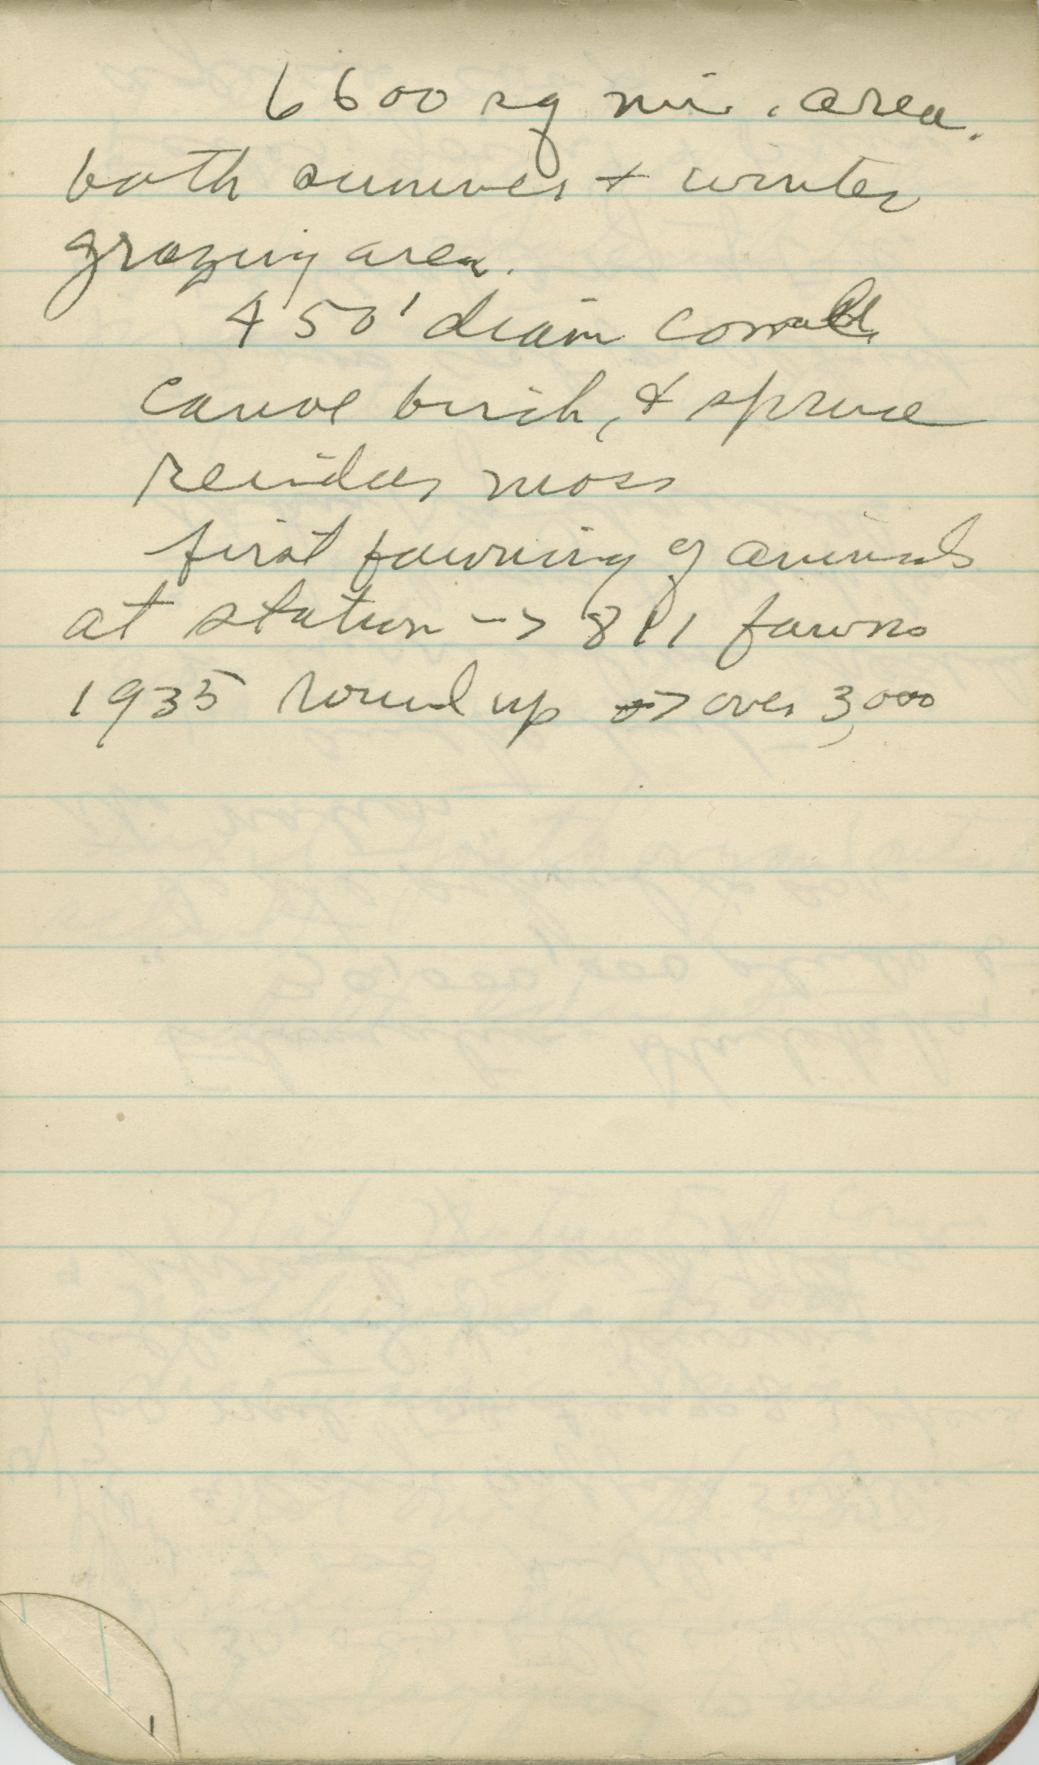 6600 sq mi. area.
both summer + winter
grazing area.
450' diam corrall
canoe birch, & spruce
reindeer moss
first fawning of animals
at station -> 811 fawns
1935 round up -> over 3,000